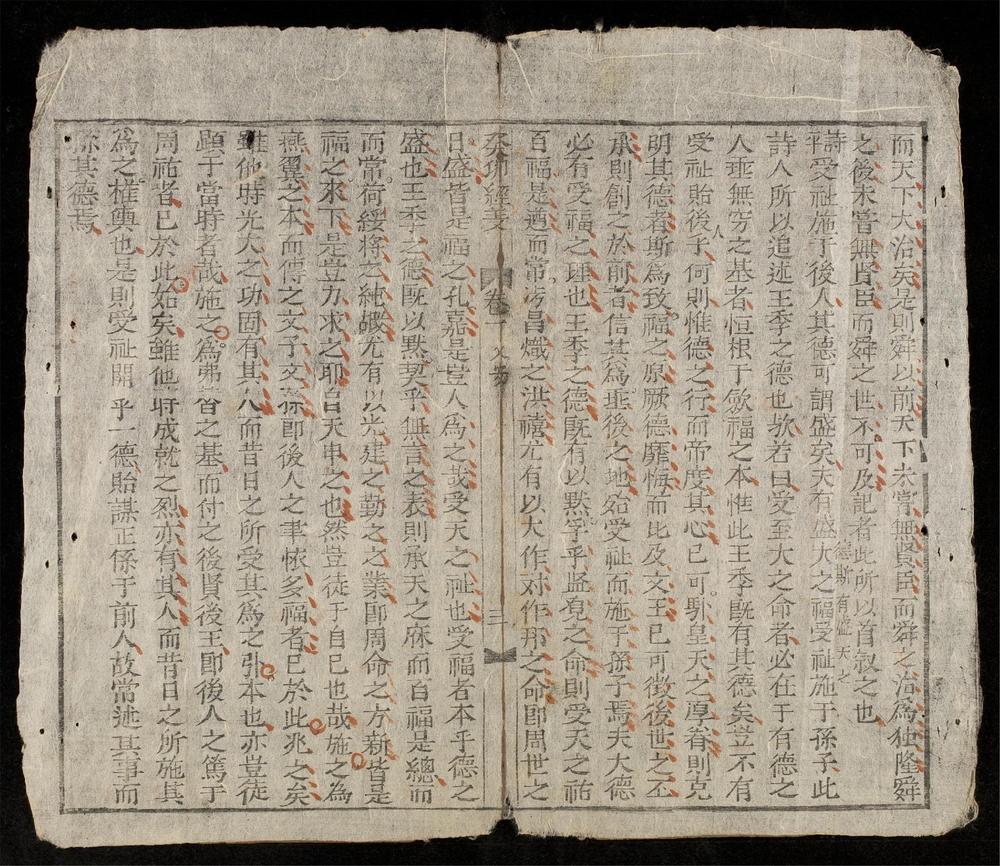 而天下大治矣是則舜以前天下未嘗無賢臣而舜之治為独隆舜
之後未嘗無賢臣而舜之世不可及記者此所以首叙之也
詩受祉施于後人其德可謂盛矣夫有盛大之福受祉施于孫子此
德斯有盛大之
詩人所以追述王季之德也欤若曰受至大之命者必在于有德之
人垂無穷之基者恒根于歛福之本惟此王季既有其德矣豈不有
受祉貽後子何則惟德之行而帝度其心已可馴皇天之厚眷則克
人
明其德者斯為致福之原厥德靡悔而比及文王已可徵後世之丕
承則創之於前者信其為垂後之地始受祉而施于孫子焉夫大德
必有受福之理也王季之德既有以默孚乎監覔之命則受天之祜
百福是遒而常涉昌熾之洪禧尤有以大作对作邦之命即周世之
癸卯經義
卷一
文芳
三
日盛皆是福之孔嘉是豈人為之哉受天之祉也受福者本乎德之
盛也王季之德既以默契乎無言之表則承天之庥而百福是總而
而常荷綏將之純嘏尤有以光建之勤之之業即周命之方新皆是
福之來下是豈力求之耶自天申之也然豈徒于自已也哉施之為
燕翼之本而傳之文子文孫即後人之聿懷多福者已於此兆之矣
雖他時光大之功固有其人而昔日之所受其為之引本也亦豈徒
顕于當時者哉施之為弗替之基而付之後賢後王即後人之篤于
周祜者已於此始矣雖他時成就之烈亦有其人而昔日之所施其
為之權輿也是則受祉開乎一德貽謀正係于前人故常述其事而
除其德焉